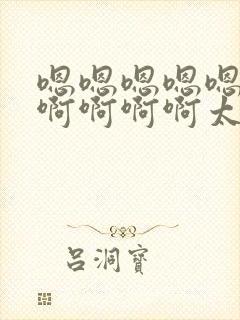 嗯嗯嗯嗯嗯
啊啊啊啊太
吕洞宾